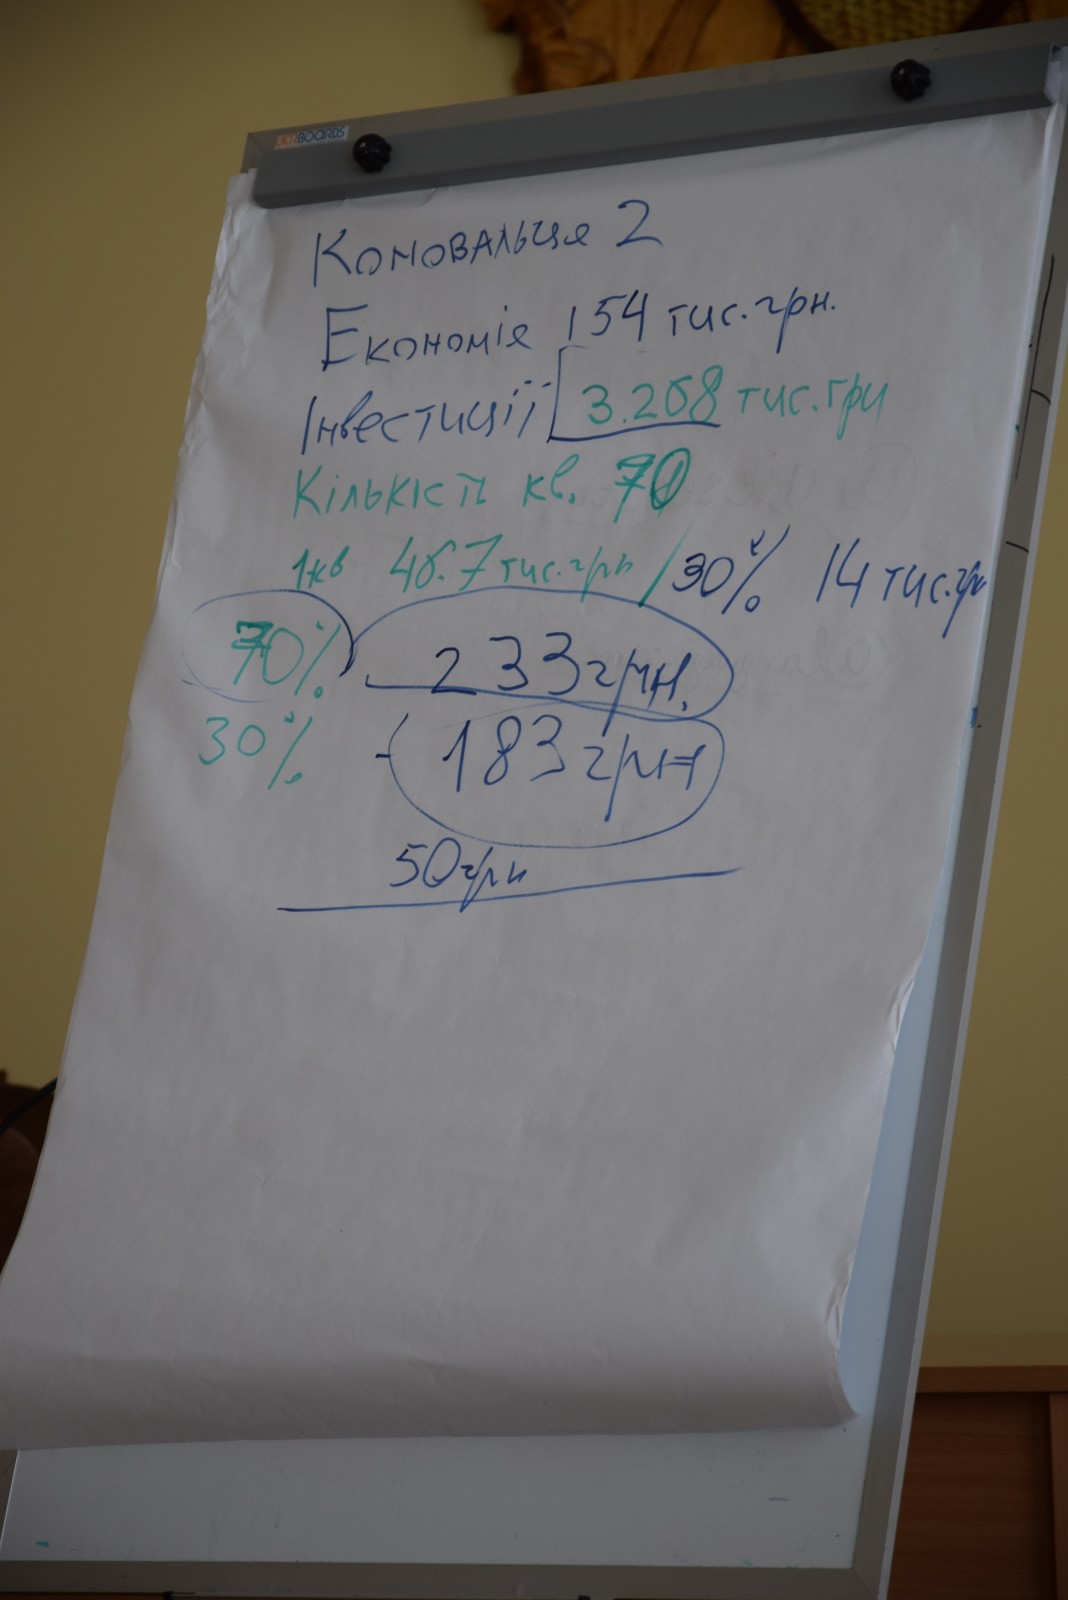 UKRBOARDS
Коновальця 2
Економія 154 тис.грн.
Інвестиції 3.268 тис.грн
Кількість кв. 70
1кв 46.7 тис.грн / 30% 14 тис.грн
70% - 233грн.
30% - 183грн
50грн